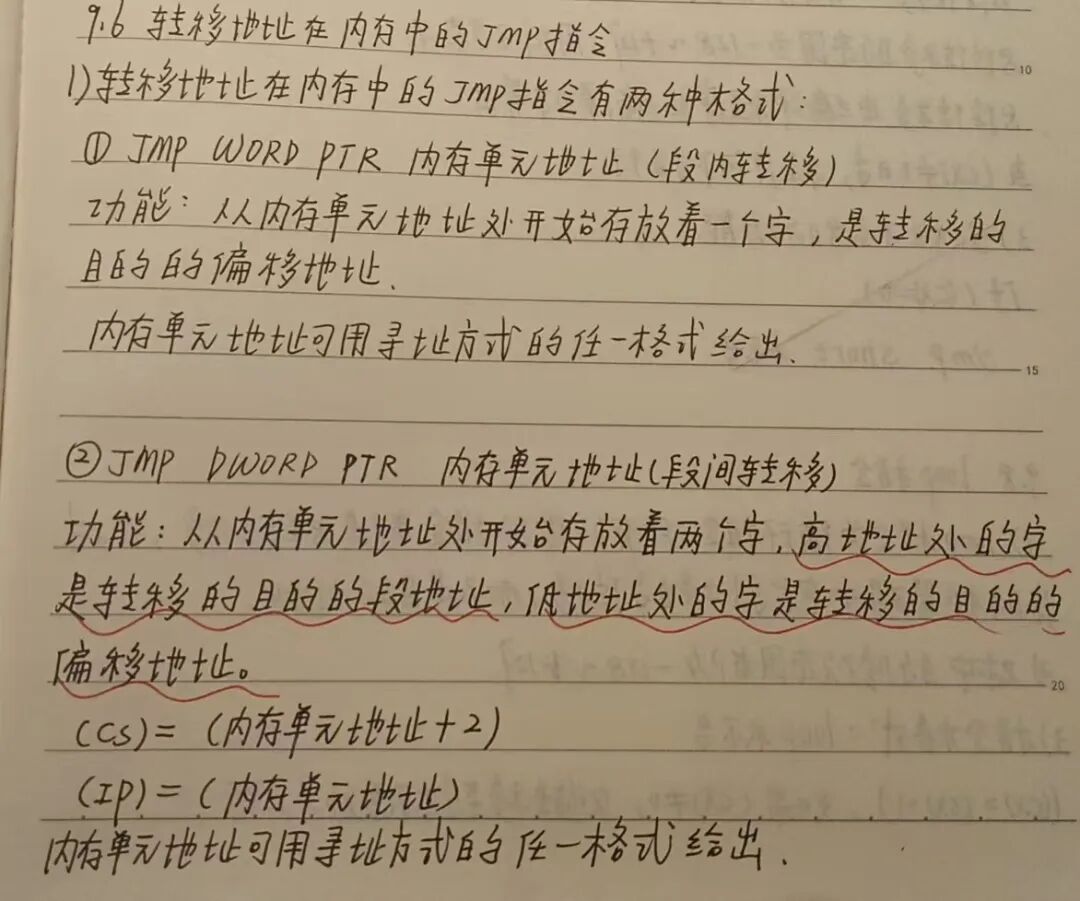 9.6 转移地址在内存中的JMP指令
10
1)转移地址在内存中的JMP指令有两种格式:
① JMP WORD PTR 内存单元地址(段内转移)
功能:从内存单元地址处开始存放着一个字,是转移的
目的的偏移地址.
内存单元地址可用寻址方式的任一格式给出.
15
②JMP DWORD PTR 内存单元地址(段间转移)
功能:从内存单元地址处开始存放着两个字,高地址处的字
是转移的目的的段地址,低地址处的字是转移的目的的
偏移地址。
20
(CS)=(内存单元地址+2)
(IP)=(内存单元地址)
内存单元地址可用寻址方式的任一格式给出.